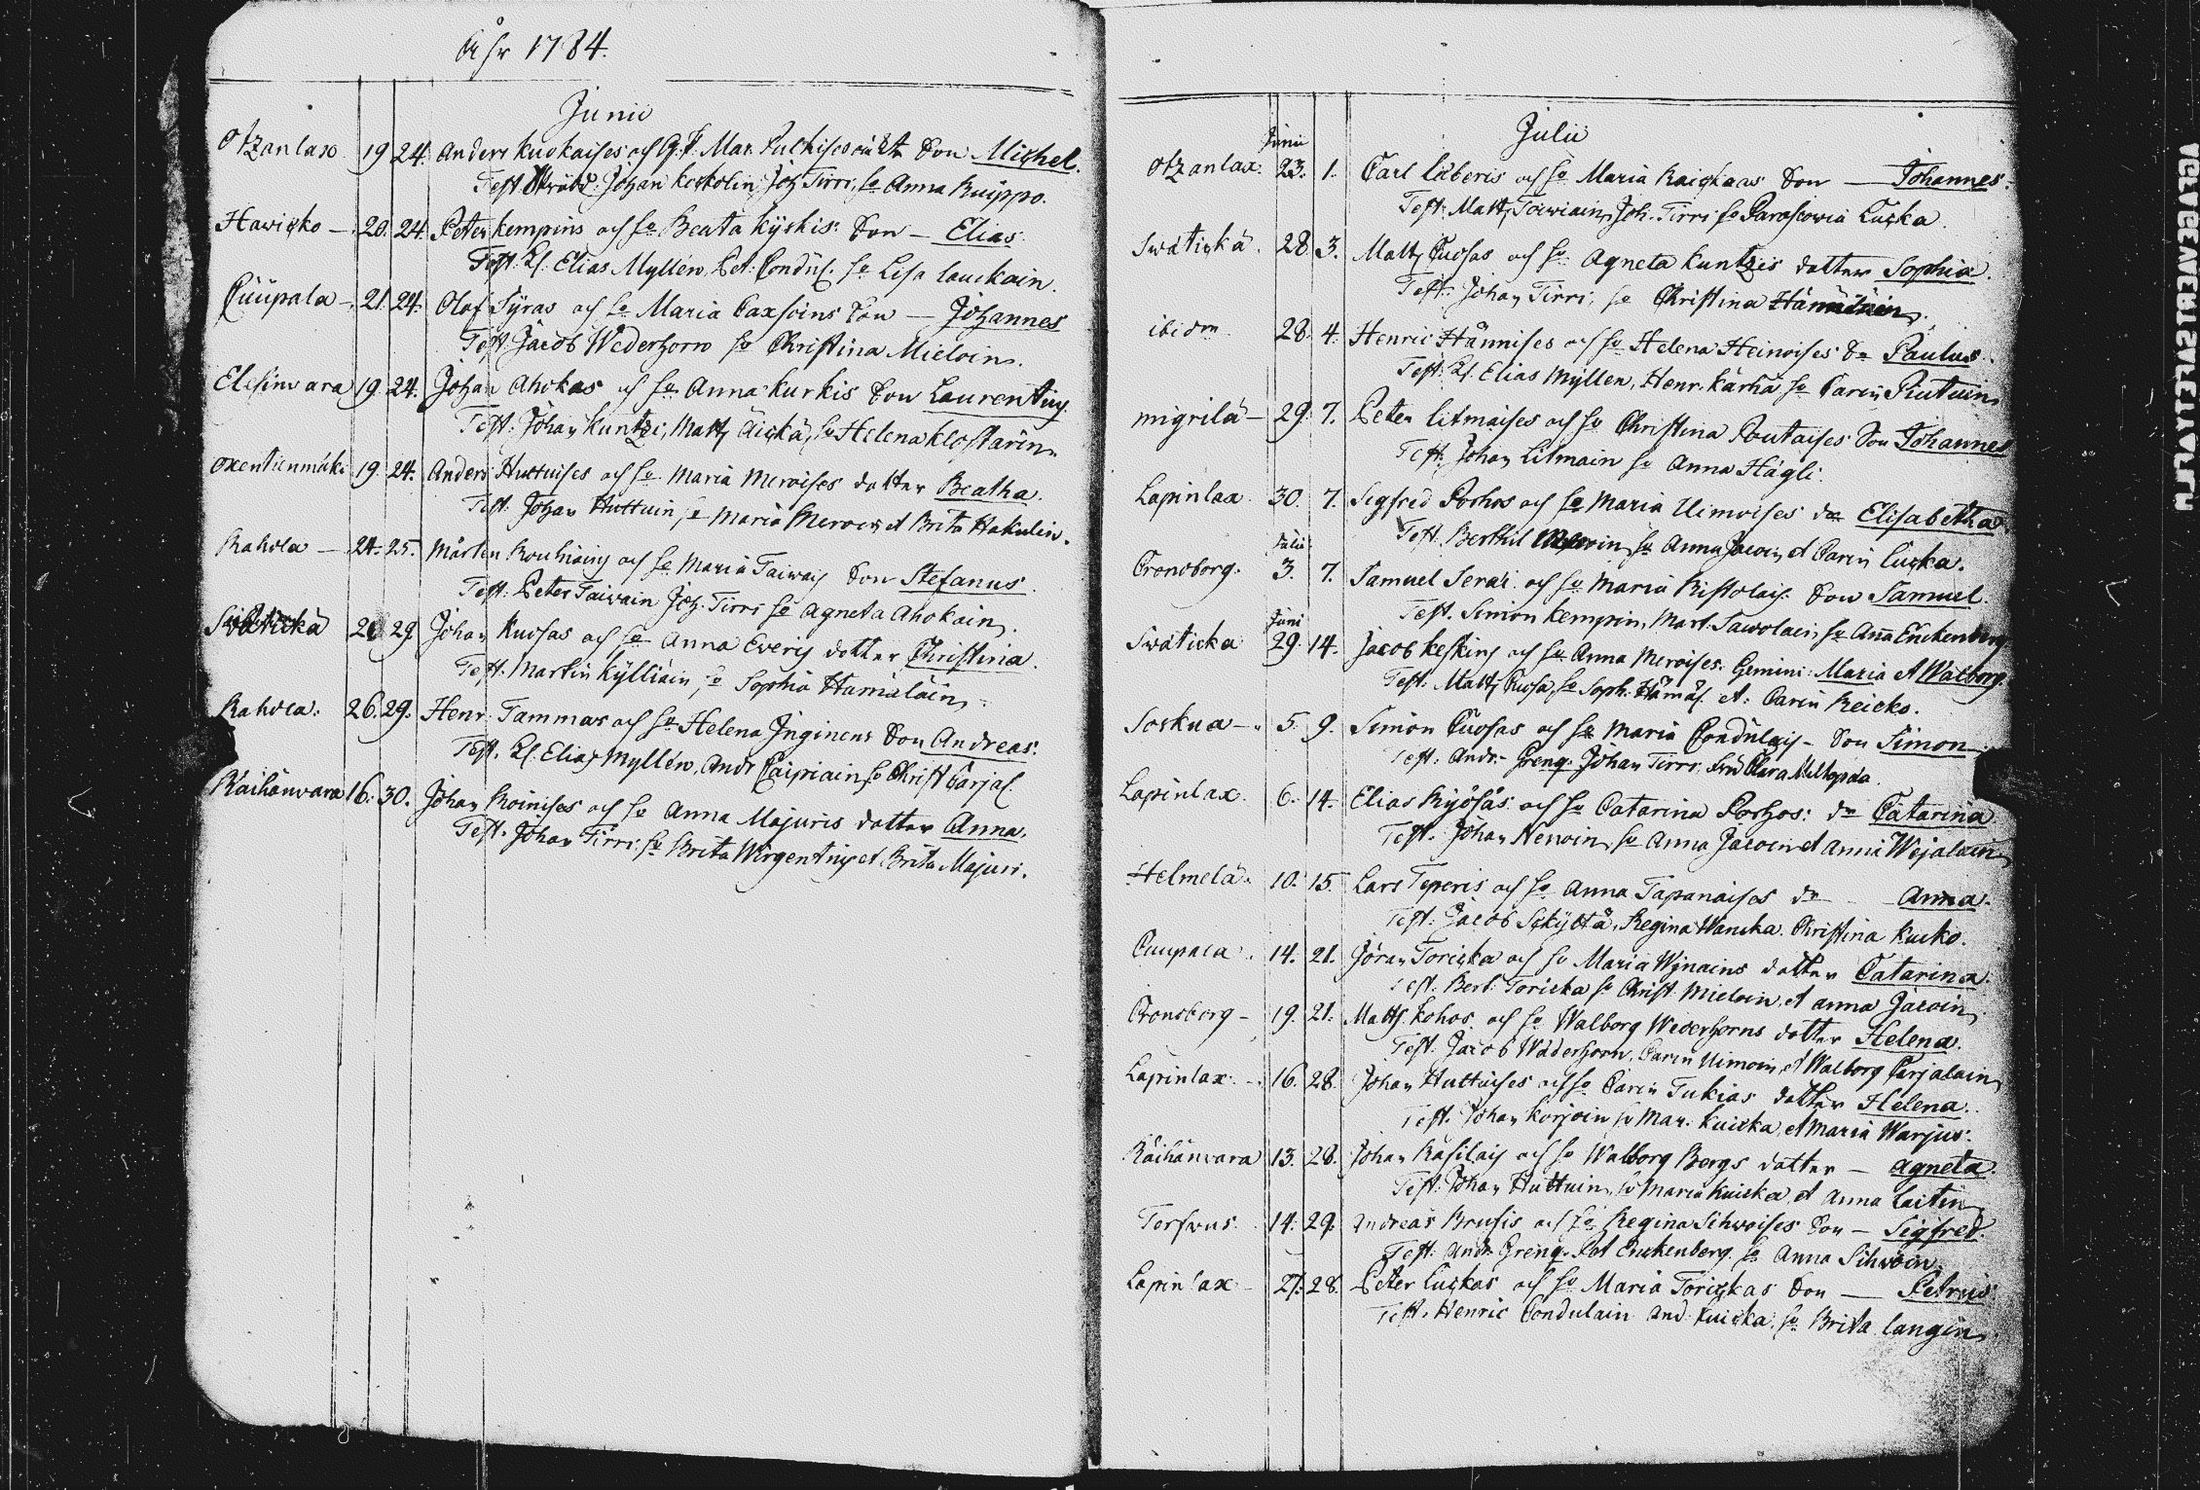 Åhr 1784.
Junii
Otzanlax 19 24. Anders Kuokaises och Mar. Son Michel.
Test. Johan Koskolin, Joh Tirri, Anna Kuippo.
Havicko — 20. 24. Peter Kempins och Beata Kyskis: Son — Elias.
Test. Elias Myllén, Pet: Condul. Lisa Lauckain.
Cuupala —. 21. 24. Olof Tyras och Maria Caxoins Son — Johannes
Test Jacob Wederhorn Christina Mieloin.
Elisinvara 19. 24. Johan Ahokas och Anna Kurkis Son Laurentius
Test. Johan Kuntzi, Matts Äickä, Helena Klostarin.
Oxentienmäki 19. 24. Anders Huttuises och Maria Meroises dotter Beatha.
Test. Johan Huttuin, Maria Meroin et Brita Hakulin.
Rahola — .24. 25. Mårten Rouhiains och Maria Taiwais Son Stefanus.
Test. Peter Taiwain Joh. Tirri Agneta Ahokain.
Svåtickä 29 Johan Kuosas och Anna Everis dotter Christina.
Test. Martin Kylliäin, Sophia Hämäläin
Rahola. 26. 29. Henr. Tammas och Helena Inginens Son Andreas.
Test. Elias Myllén, Andr Caipiain Christ Carjal.
Räihänvara 16. 30. Johan Koinises och Anna Majuris dotter Anna.
Test. Johan Tirri, Brita Wirgentius et Brita Majuri.
Julii
Junii
Otzanlax: 23. 1. Carl Läberis och Maria Raickaas Son — Johannes.
Test. Matts Toiviain, Joh. Tirri Parascovia Lucka.
Swåtickä. 28. 3. Matts Cuosas och Agneta Kuntzis dotter Sophia.
Test. Johan Tirri, Christina Hämäläin.
ibidm 28. 4. Henric Hännises och Helena Heinoises Paulus.
Test. Elias Myllen, Henr. Kärhä Carin
migrilä — 29. 7. Peter Litmaises och Christina Poutaises Son Johannes
Test. Johan Litmain Anna Hägli.
Lapinlax 30. 7. Sigfred Porhos och Maria Uimoises Elisabetha
Test. Berthil Anna Jacoin et Carin Lucka.
Julii
Cronoborg. 3. 7. Samuel Serai och Maria Ristolais Son Samuel.
Test. Simon Kempin, Mart. Sawolain, Anna Enckenberg
Juni
Swåticka 29. 14. Jacob Keskins och Anna Meroises. Gemini: Maria et Walborg.
Test. Matts Cuosa, Soph. Hämäl. et Carin Reicko.
Sorkua — 5. 9. Simon Cuosas och Maria Condulais — Son Simon
Test. Andr. Grenq. Johan Tirri, Clara Miltopæa.
Lapinlax. 6. 14. Elias Ryösäs och Catarina Porhos: Catarina
Test. Johan Henoin, Anna Jacoin et Anna Wejalain
Helmelä. 10. 15. Lars Teperis och Anna Tapanaises Anna.
Test. Jacob Sckyttä, Regina Wancka. Christina Kucko.
Cuupala. 14. 21. Jöran Toricka och Maria Wjnains dotter Catarina.
Test. Bert. Toricka Christ. Mieloin, et Anna Jacoin,
Cronoborg — 19. 21. Matts Kohos och Walborg Wederhorns dotter Helena.
Test. Jacob Wäderhorn, Carin Uimoin, et Walborg Carjalain
Lapinlax. — 16. 28. Johan Huttuises och Carin Tukias dotter Helena.
Test. Johan Korjoin Mar. Kuicka, et Maria Warjus.
Räihänvara 13. 28. Johan Rasilais och Walborg Bergs dotter — Agneta.
Test. Johan Huttuin, Maria Kuicka et Anna Laitin
Torswus. 14. 29. Andreas Brusis och Regina Sihvoises Son — Sigfred.
Test. Andr. Grenq. Pet Enckenberg. Anna Sihvoin.
Lapinlax — 21. 28. Peter Luckas och Maria Torickas Son — Petrus
Test. Henric Condulain And. Kuicka. Brita Langin.